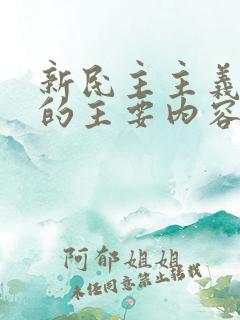 新民主主義
的主要内容
阿郁姐姐
未经同意禁止转载